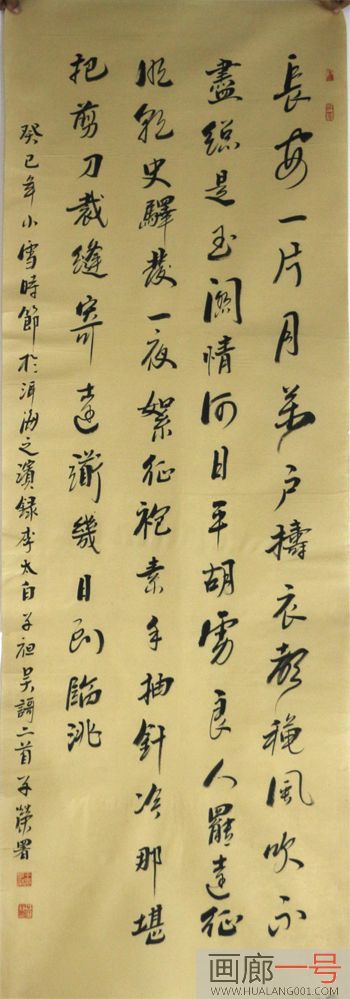 長安一片月萬戶擣衣聲穐風吹不
盡總是玉關情何日平胡虜良人罷遠征
明朝史驛發一夜絮征袍素手抽針冷那堪
把剪刀裁縫寄遠道幾日到臨洮
癸巳年小雪時節於洱海之濱録李太白子夜吳謌二首榮署
画廊一号
WWW.HUALANG001.COM